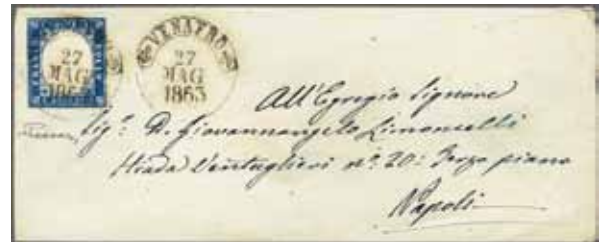 VENAFRO
27
MAG
1863
27
MAG
1863
All'Egregio Signore
Sig.r D. Giovannangelo Limoncelli
Strada Ventaglieri n.o 20: Terzo piano
Napoli